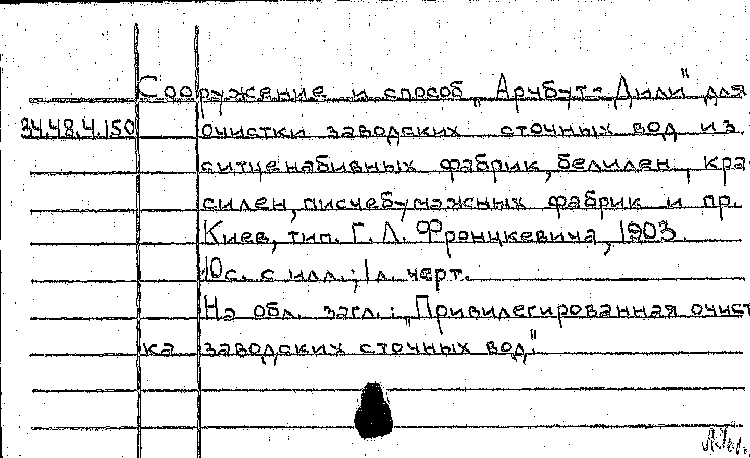 Сооружение и способ „Арчбут-Дили" для
34.48.4.150 очистки заводских сточных вод из
ситценабивных фабрик, белилен, кра-
силен, писчебумажных фабрик и пр.
Киев, тип. Г. Л. Фронцкевича, 1903.
10с. с илл.; 1л. черт.
На обл. загл.: „Привилегированная очист
ка заводских сточных вод".